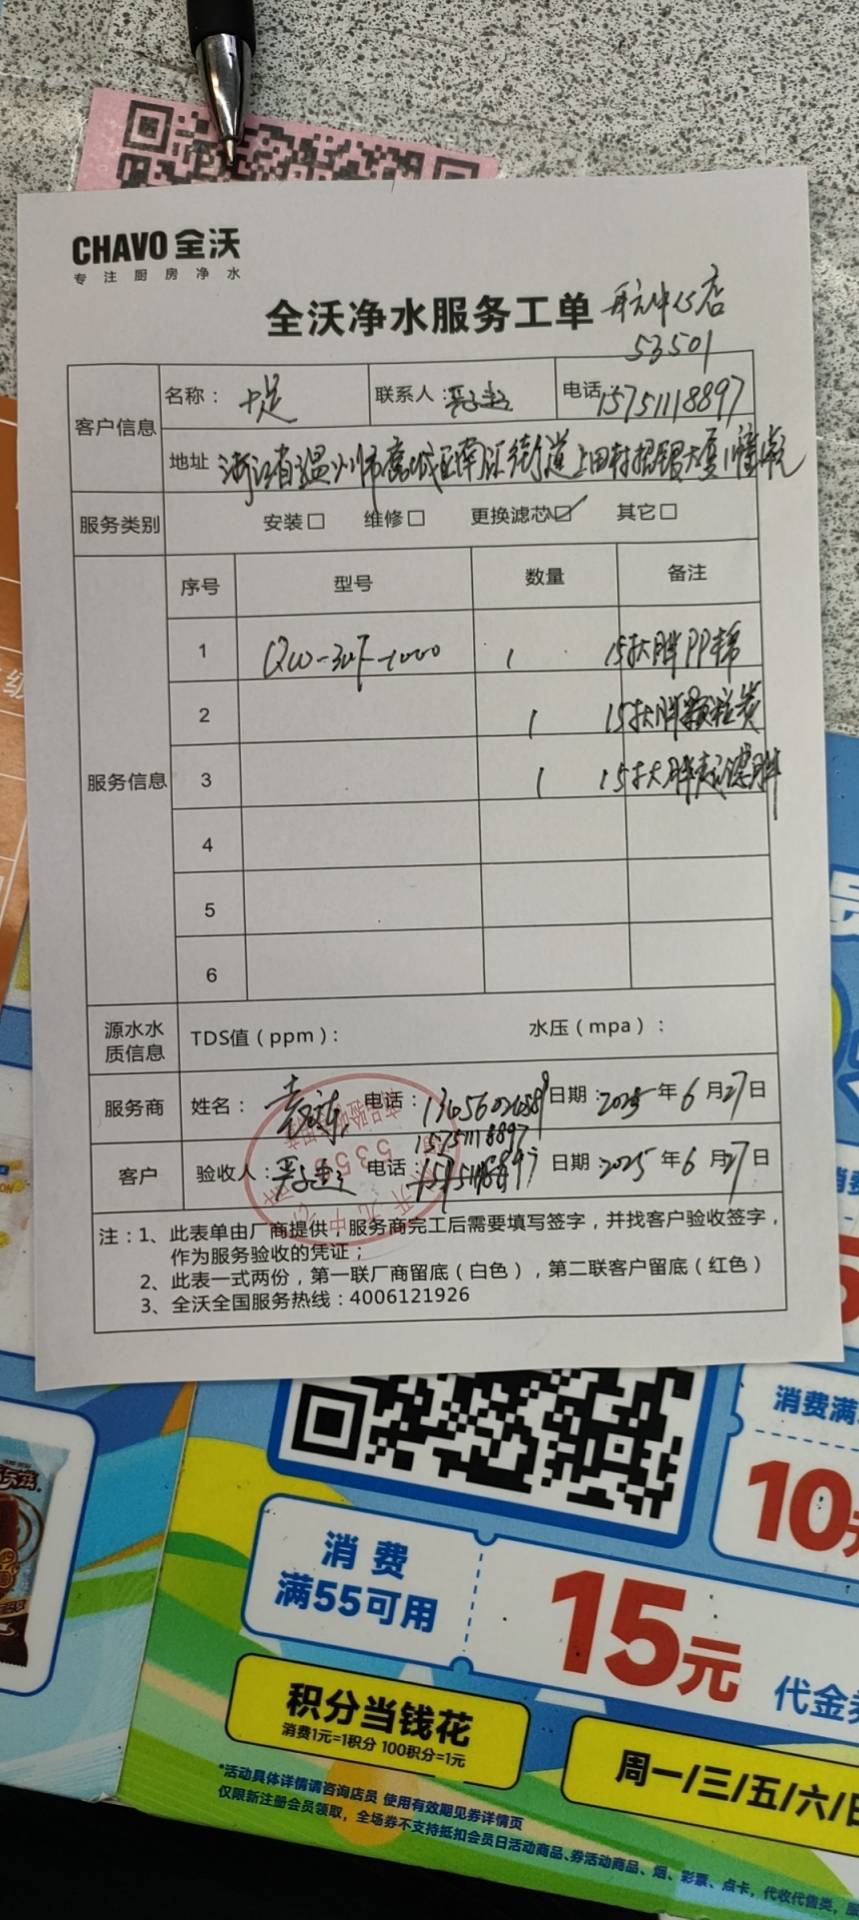 CHAVO 全沃
专注厨房净水
全沃净水服务工单 开元中心店
53501
客户信息 名称：十足 联系人： 电话：15751118897
地址 浙江省温州市鹿城区南汇街道上田村招银大厦1幢
服务类别 安装□ 维修□ 更换滤芯☑ 其它□
服务信息 序号 型号 数量 备注
1 QW-3UF-1000 1 15寸大胖PP棉
2 1 15寸大胖颗粒炭
3 1 15寸大胖
4
5
6
源水水质信息 TDS值（ppm）： 水压（mpa）：
服务商 姓名： 电话： 日期：2025年6月27日
15751118897
客户 验收人： 电话： 日期：2025年6月27日
注：1、此表单由厂商提供，服务商完工后需要填写签字，并找客户验收签字，
作为服务验收的凭证；
2、此表一式两份，第一联厂商留底（白色），第二联客户留底（红色）
3、全沃全国服务热线：4006121926
消费满
10元
消费
满55可用
15元
代金券
积分当钱花
消费1元=1积分 100积分=1元
周一/三/五/六/日
*活动具体详情请咨询店员 使用有效期见券详情页
仅限新注册会员领取，全场券不支持抵扣会员日活动商品、券活动商品、烟、彩票、点卡，代收代售类，